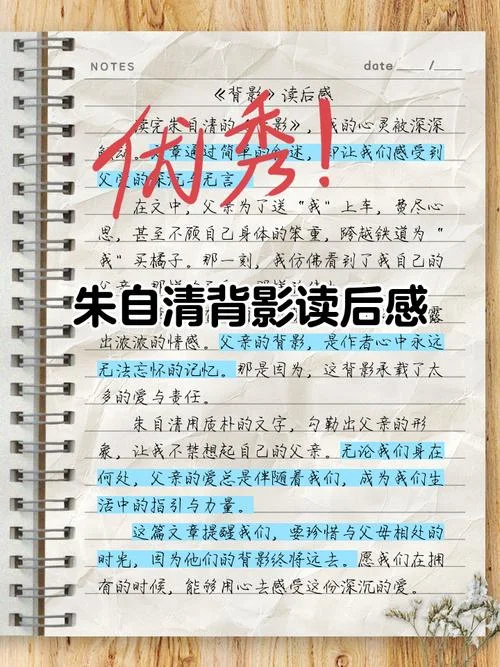 NOTES
date ____ / ____
《背影》读后感
读完朱自清的 影》, 的心灵被深深
章通过简单的 述, 却让我们感受到
父 的深沉与无言
在文中, 父亲为了送“我”上车, 费尽心
思, 甚至不顾自己身体的笨重, 跨越铁道为“
我”买橘子。那一刻, 我仿佛看到了我自己的
优秀!
朱自清背影读后感
出浓浓的情感。父亲的背影, 是作者心中永远
无法忘怀的记忆。那是因为, 这背影承载了太
多的爱与责任。
朱自清用质朴的文字, 勾勒出父亲的形
象, 让我不禁想起自己的父亲。无论我们身在
何处, 父亲的爱总是伴随着我们, 成为我们生
活中的指引与力量。
这篇文章提醒我们, 要珍惜与父母相处的
时光, 因为他们的背影终将远去。愿我们在拥
有的时候, 能够用心去感受这份深沉的爱。